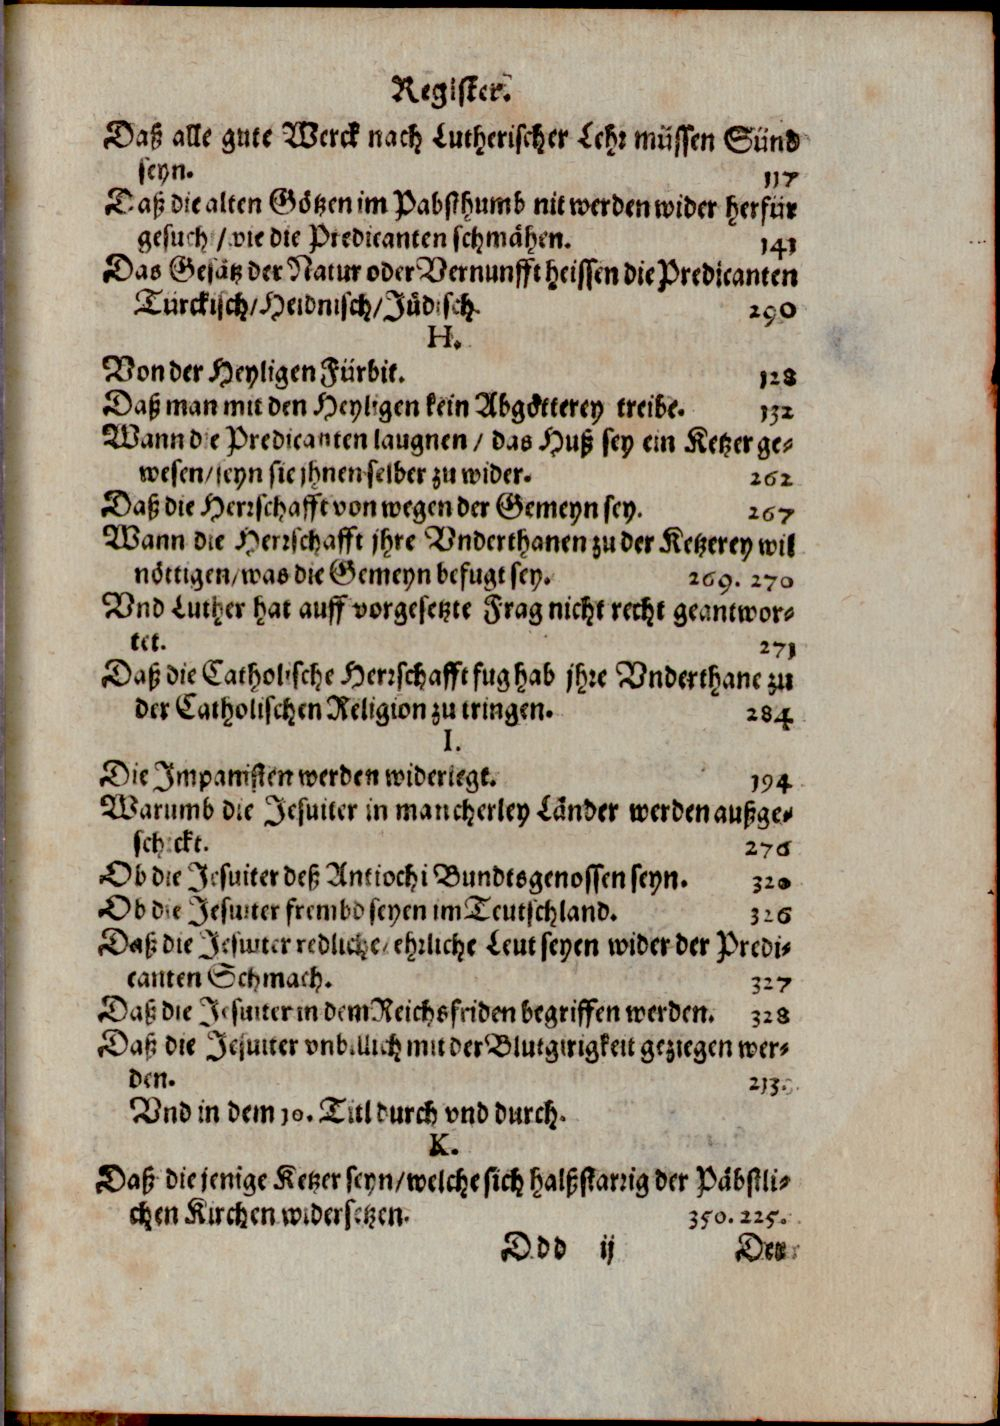 Register.
Daß alle gute Werck nach Lutherischer Lehr müssen Sünd
seyn. 117
Daß die alten Götzen im Pabsthumb nit werden wider herfür
gesuch / wie die Predicanten schmähen. 141
Das Gesätz der Natur oder Vernunfft heissen die Predicanten
Türckisch/Heidnisch/Jüdisch. 290
H.
Von der Heyligen Fürbit. 128
Daß man mit den Heyligen kein Abgötterey treibe. 132
Wann die Predicanten laugnen / das Huß sey ein Ketzer ge-
wesen/seyn sie jhnen selber zu wider. 262
Daß die Herrschafft von wegen der Gemeyn sey. 267
Wann die Herrschafft jhre Vnderthanen zu der Ketzerey wil
nöttigen/was die Gemeyn befugt sey. 269. 270
Vnd Luther hat auff vorgesetzte Frag nicht recht geantwor-
tet. 271
Daß die Catholische Herrschafft fug hab jhre Vnderthane zu
der Catholischen Religion zu tringen. 284
I.
Die Impanisten werden widerlegt. 194
Warumb die Jesuiter in mancherley Länder werden außge-
schickt. 276
Ob die Jesuiter deß Antiochi Bundtsgenossen seyn. 320
Ob die Jesuiter frembd seyen im Teutschland. 326
Daß die Jesuiter redliche/ ehrliche Leut seyen wider der Predi-
canten Schmach. 327
Daß die Jesuiter in dem Reichsfriden begriffen werden. 328
Daß die Jesuiter vnbillich mit der Blutgirigkeit geziegen wer-
den. 213.
Vnd in dem 10. Titl durch vnd durch.
K.
Daß die jenige Ketzer seyn/welche sich halßstarrig der Päbstli-
chen Kirchen widersetzen. 350. 225.
Ddd ij Den